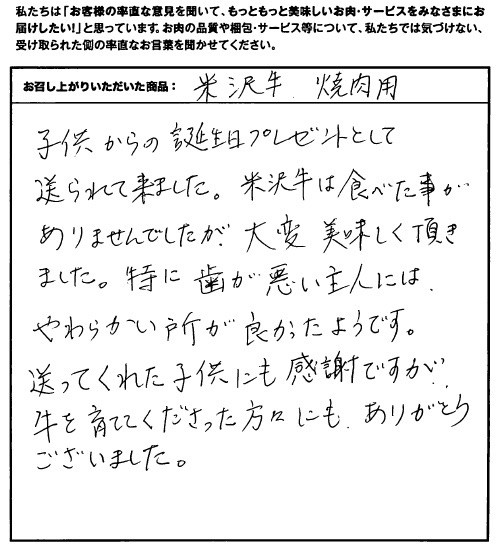 私たちは「お客様の率直な意見を聞いて、もっともっと美味しいお肉・サービスをみなさまにお
届けしたい！」と思っています。お肉の品質や梱包・サービス等について、私たちでは気づけない、
受け取られた側の率直なお言葉を聞かせてください。
お召し上がりいただいた商品： 米沢牛 焼肉用
子供からの誕生日プレゼントとして
送られて来ました。米沢牛は食べた事が
ありませんでしたが、大変美味しく頂き
ました。特に歯が悪い主人には、
やわらかい所が良かったようです。
送ってくれた子供にも感謝ですが、
牛を育ててくださった方々にも、ありがとう
ございました。